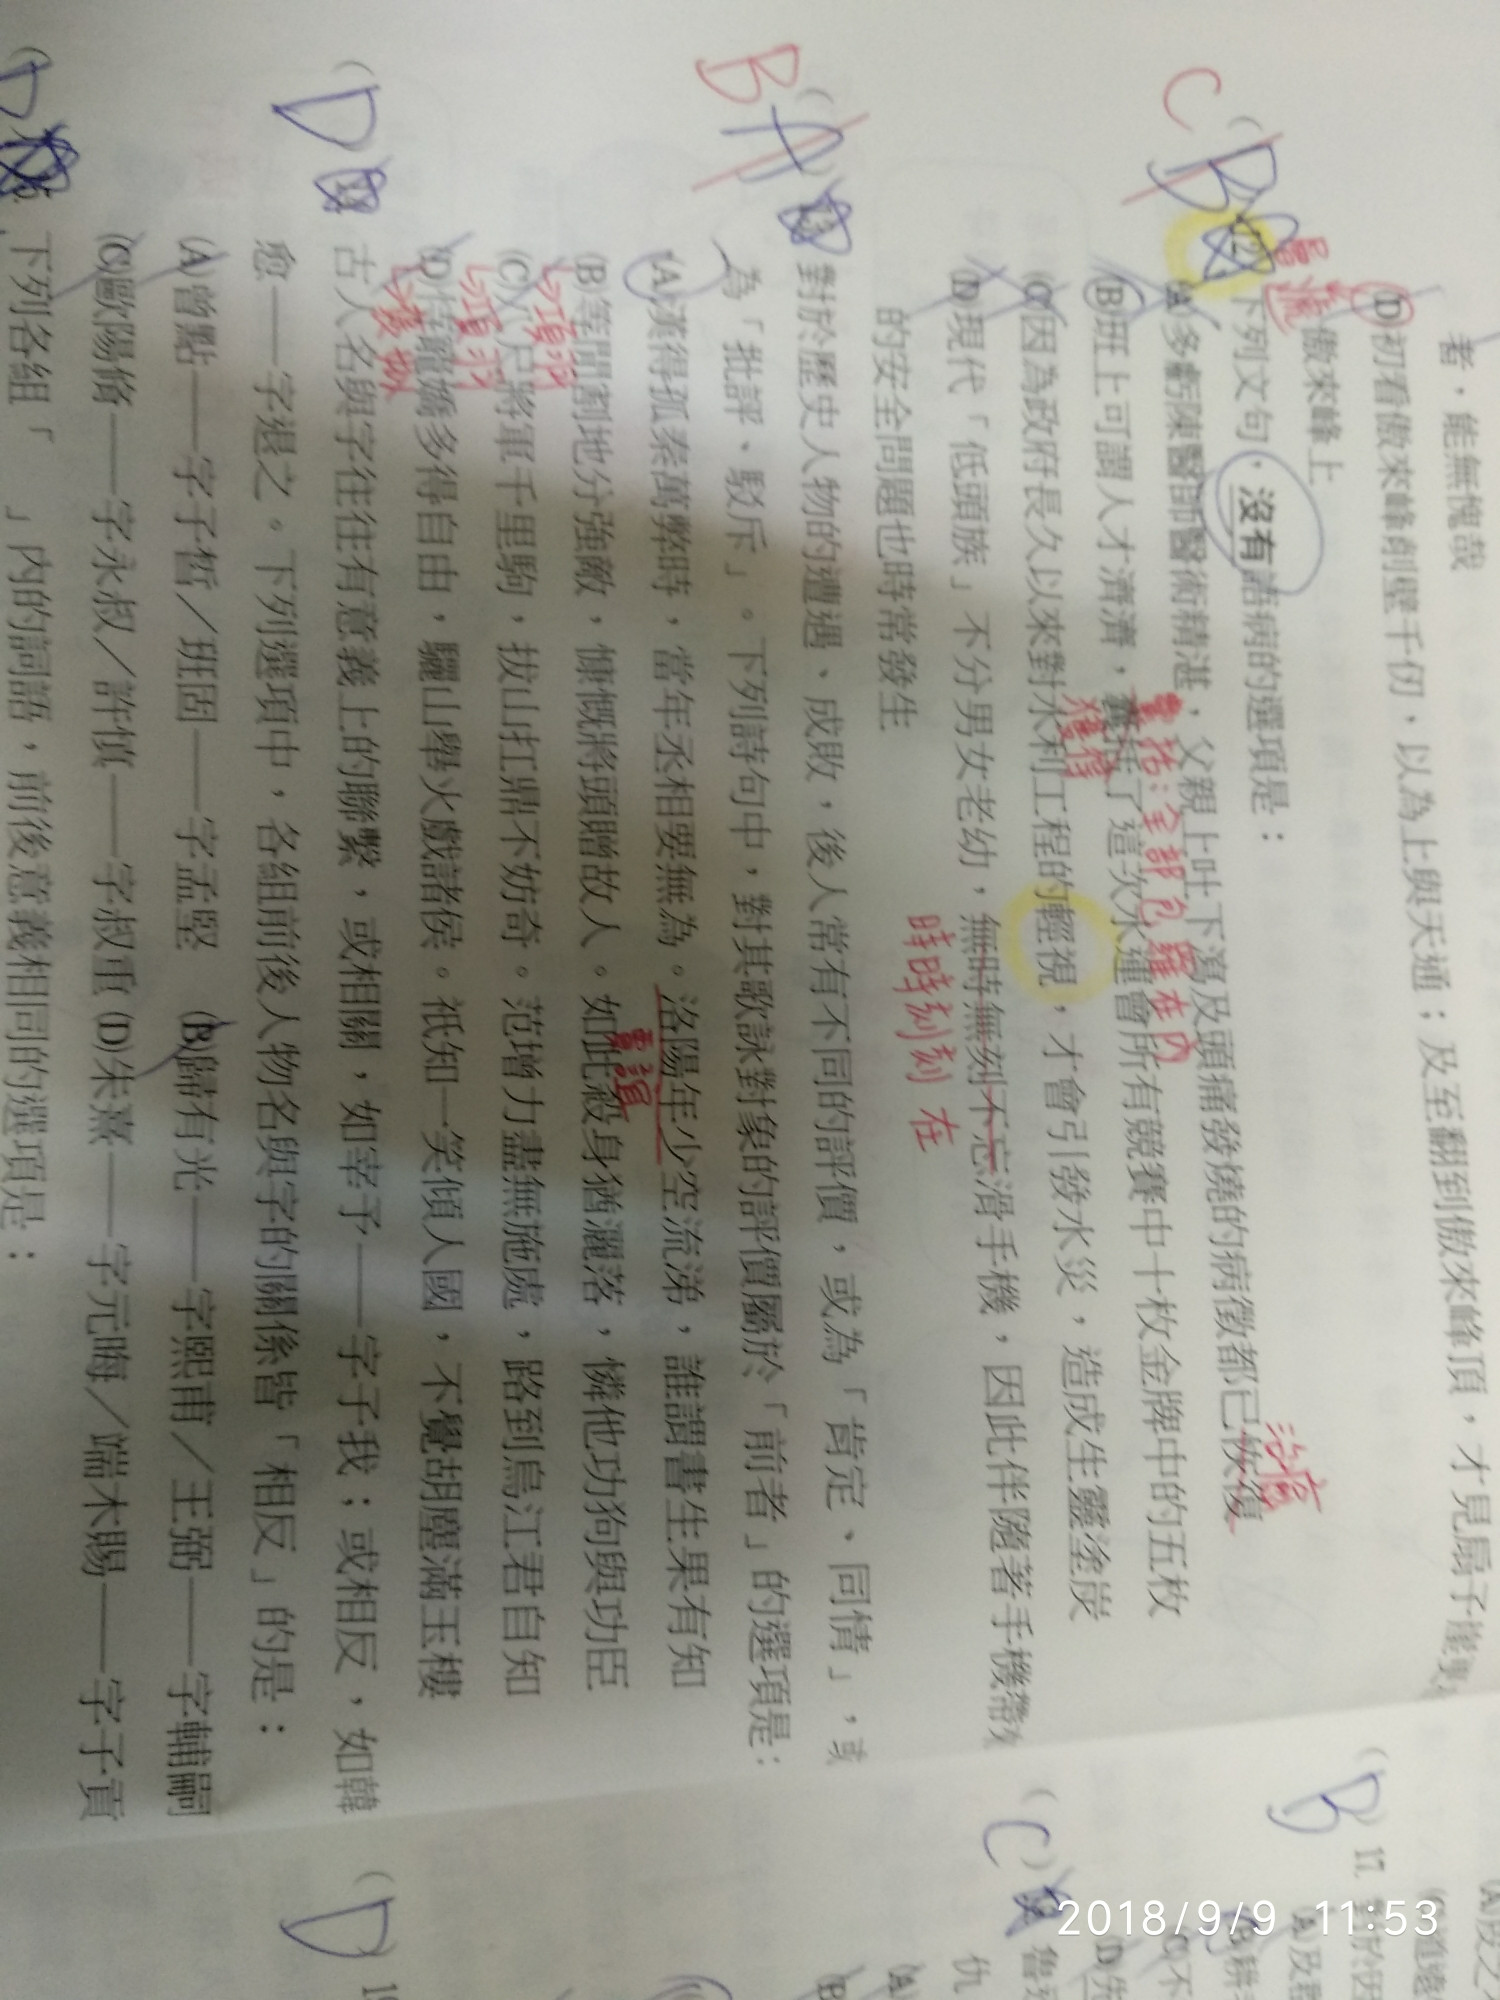 者，能無愧哉
(D)初看傲來峰削壁千仞，以為上與天通；及至翻到傲來峰頂，才見扇子崖更
傲來峰上
C
B
下列文句，沒有語病的選項是：
(A)多虧陳醫師醫術精湛，父親上吐下瀉及頭痛發燒的病徵都已恢復
治癒
(B)班上可謂人才濟濟，囊括了這次水運會所有競賽中十枚金牌中的五枚
囊括：全部包羅在內
獲得
(C)因為政府長久以來對水利工程的輕視，才會引發水災，造成生靈塗炭
(D)現代「低頭族」不分男女老幼，無時無刻不忘滑手機，因此伴隨著手機帶
時時刻刻在
的安全問題也時常發生
B
A
對於歷史人物的遭遇、成敗，後人常有不同的評價，或為「肯定、同情」，或
為「批評、駁斥」。下列詩句中，對其歌詠對象的評價屬於「前者」的選項是：
(A)漢得孤秦萬弊時，當年丞相要無為。洛陽年少空流涕，誰謂書生果有知
賈誼
(B)等閒割地分強敵，慷慨將頭贈故人。如此殺身猶灑落，憐他功狗與功臣
項羽
(C)八尺將軍千里騅，拔山扛鼎不妨奇。范增力盡無施處，路到烏江君自知
項羽
(D)恃寵嬌多得自由，驪山舉火戲諸侯。祇知一笑傾人國，不覺胡塵滿玉樓
褒姒
D
古人名與字往往有意義上的聯繫，或相關，如宰予——字子我；或相反，如韓
愈——字退之。下列選項中，各組前後人物名與字的關係皆「相反」的是：
(A)曾點——字子晳／班固——字孟堅 (B)歸有光——字熙甫／王弼——字輔嗣
(C)歐陽脩——字永叔／許慎——字叔重 (D)朱熹——字元晦／端木賜——字子貢
D
下列各組「 」內的詞語，前後意義相同的選項是：
B
17.
C
D
仇
2018/9/9 11:53